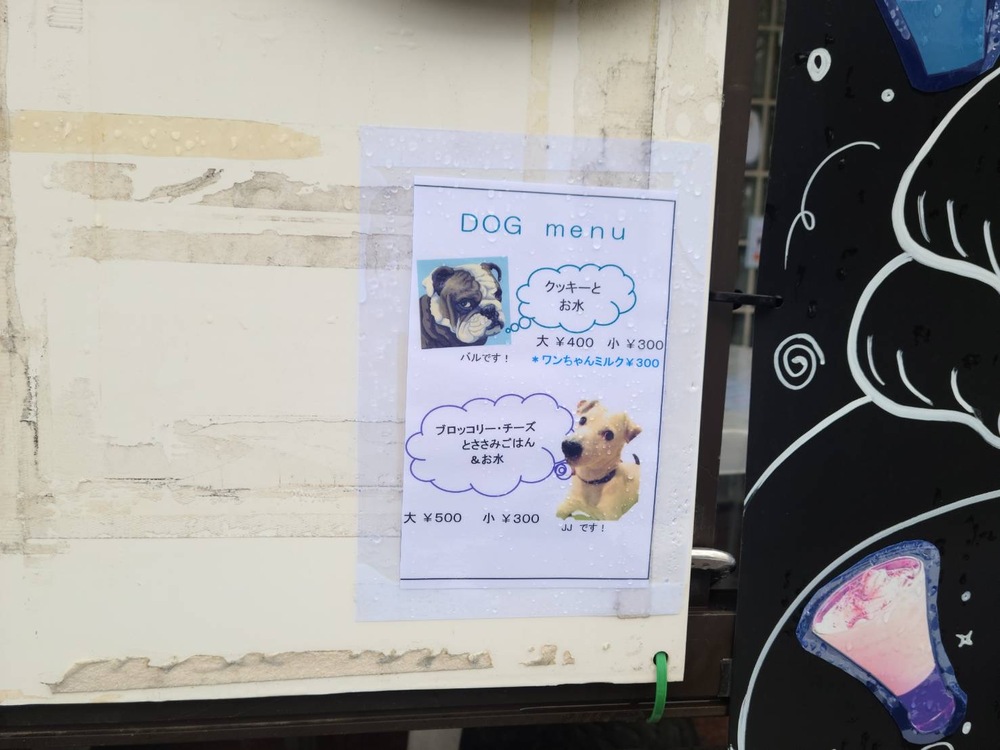 DOG menu
クッキーと
お水
大 ¥400 小 ¥300
バルです！
*ワンちゃんミルク¥300
ブロッコリー・チーズ
とささみごはん
&お水
大 ¥500 小 ¥300
JJ です！